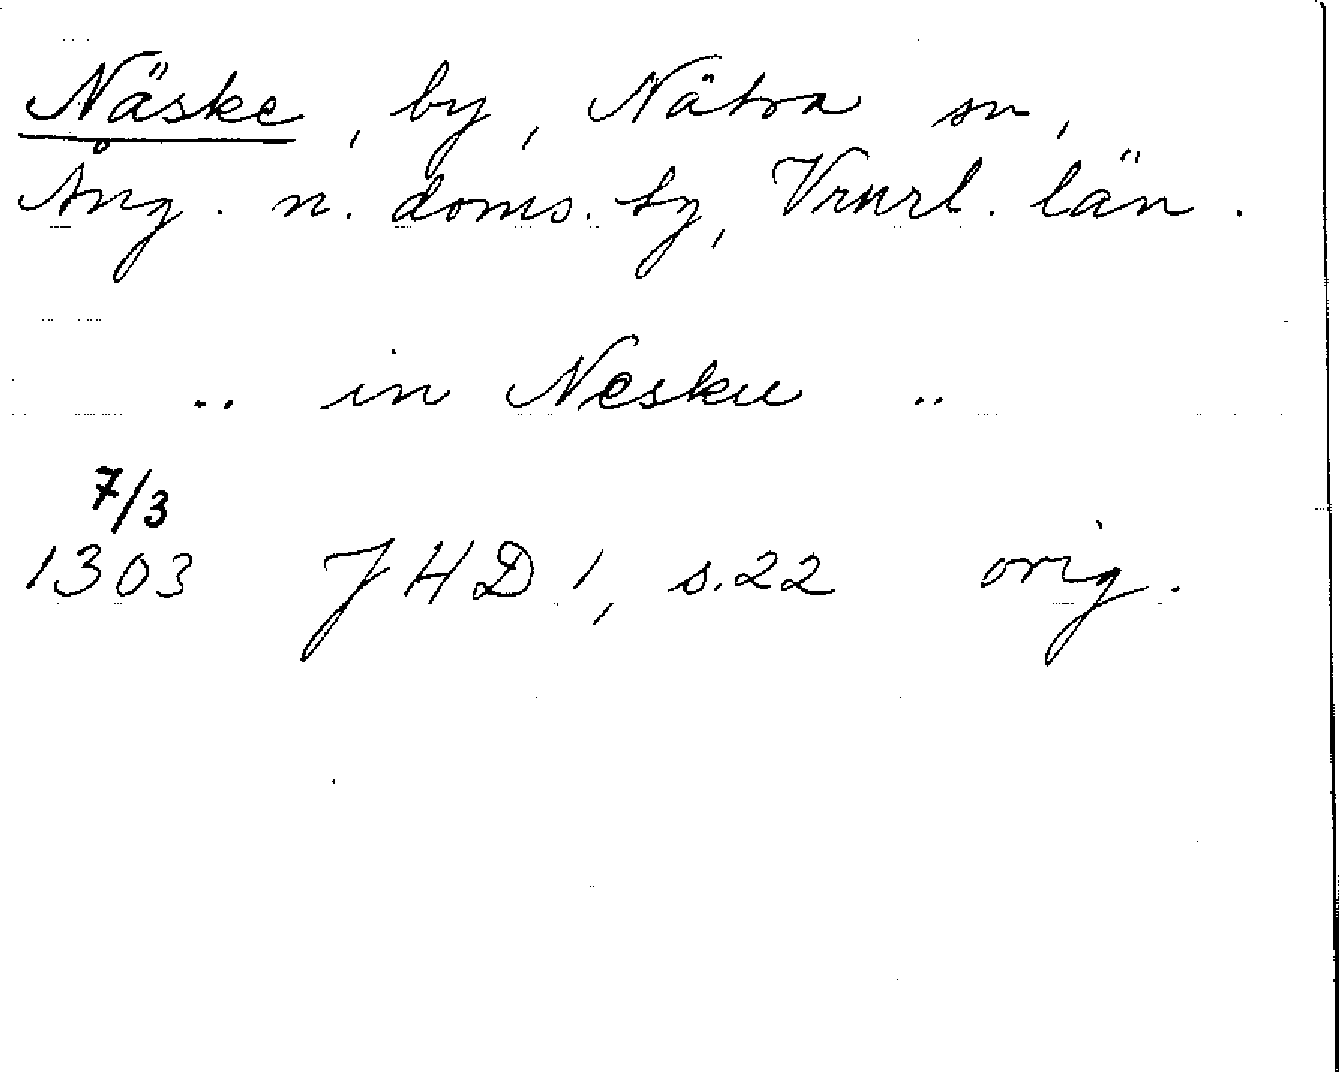 Näske, by, Nätra sn,
Ång. n. doms. tg, Vrnrl. län.
.. in Nesku ..
7/3
1303 JHD 1, s.22 orig.